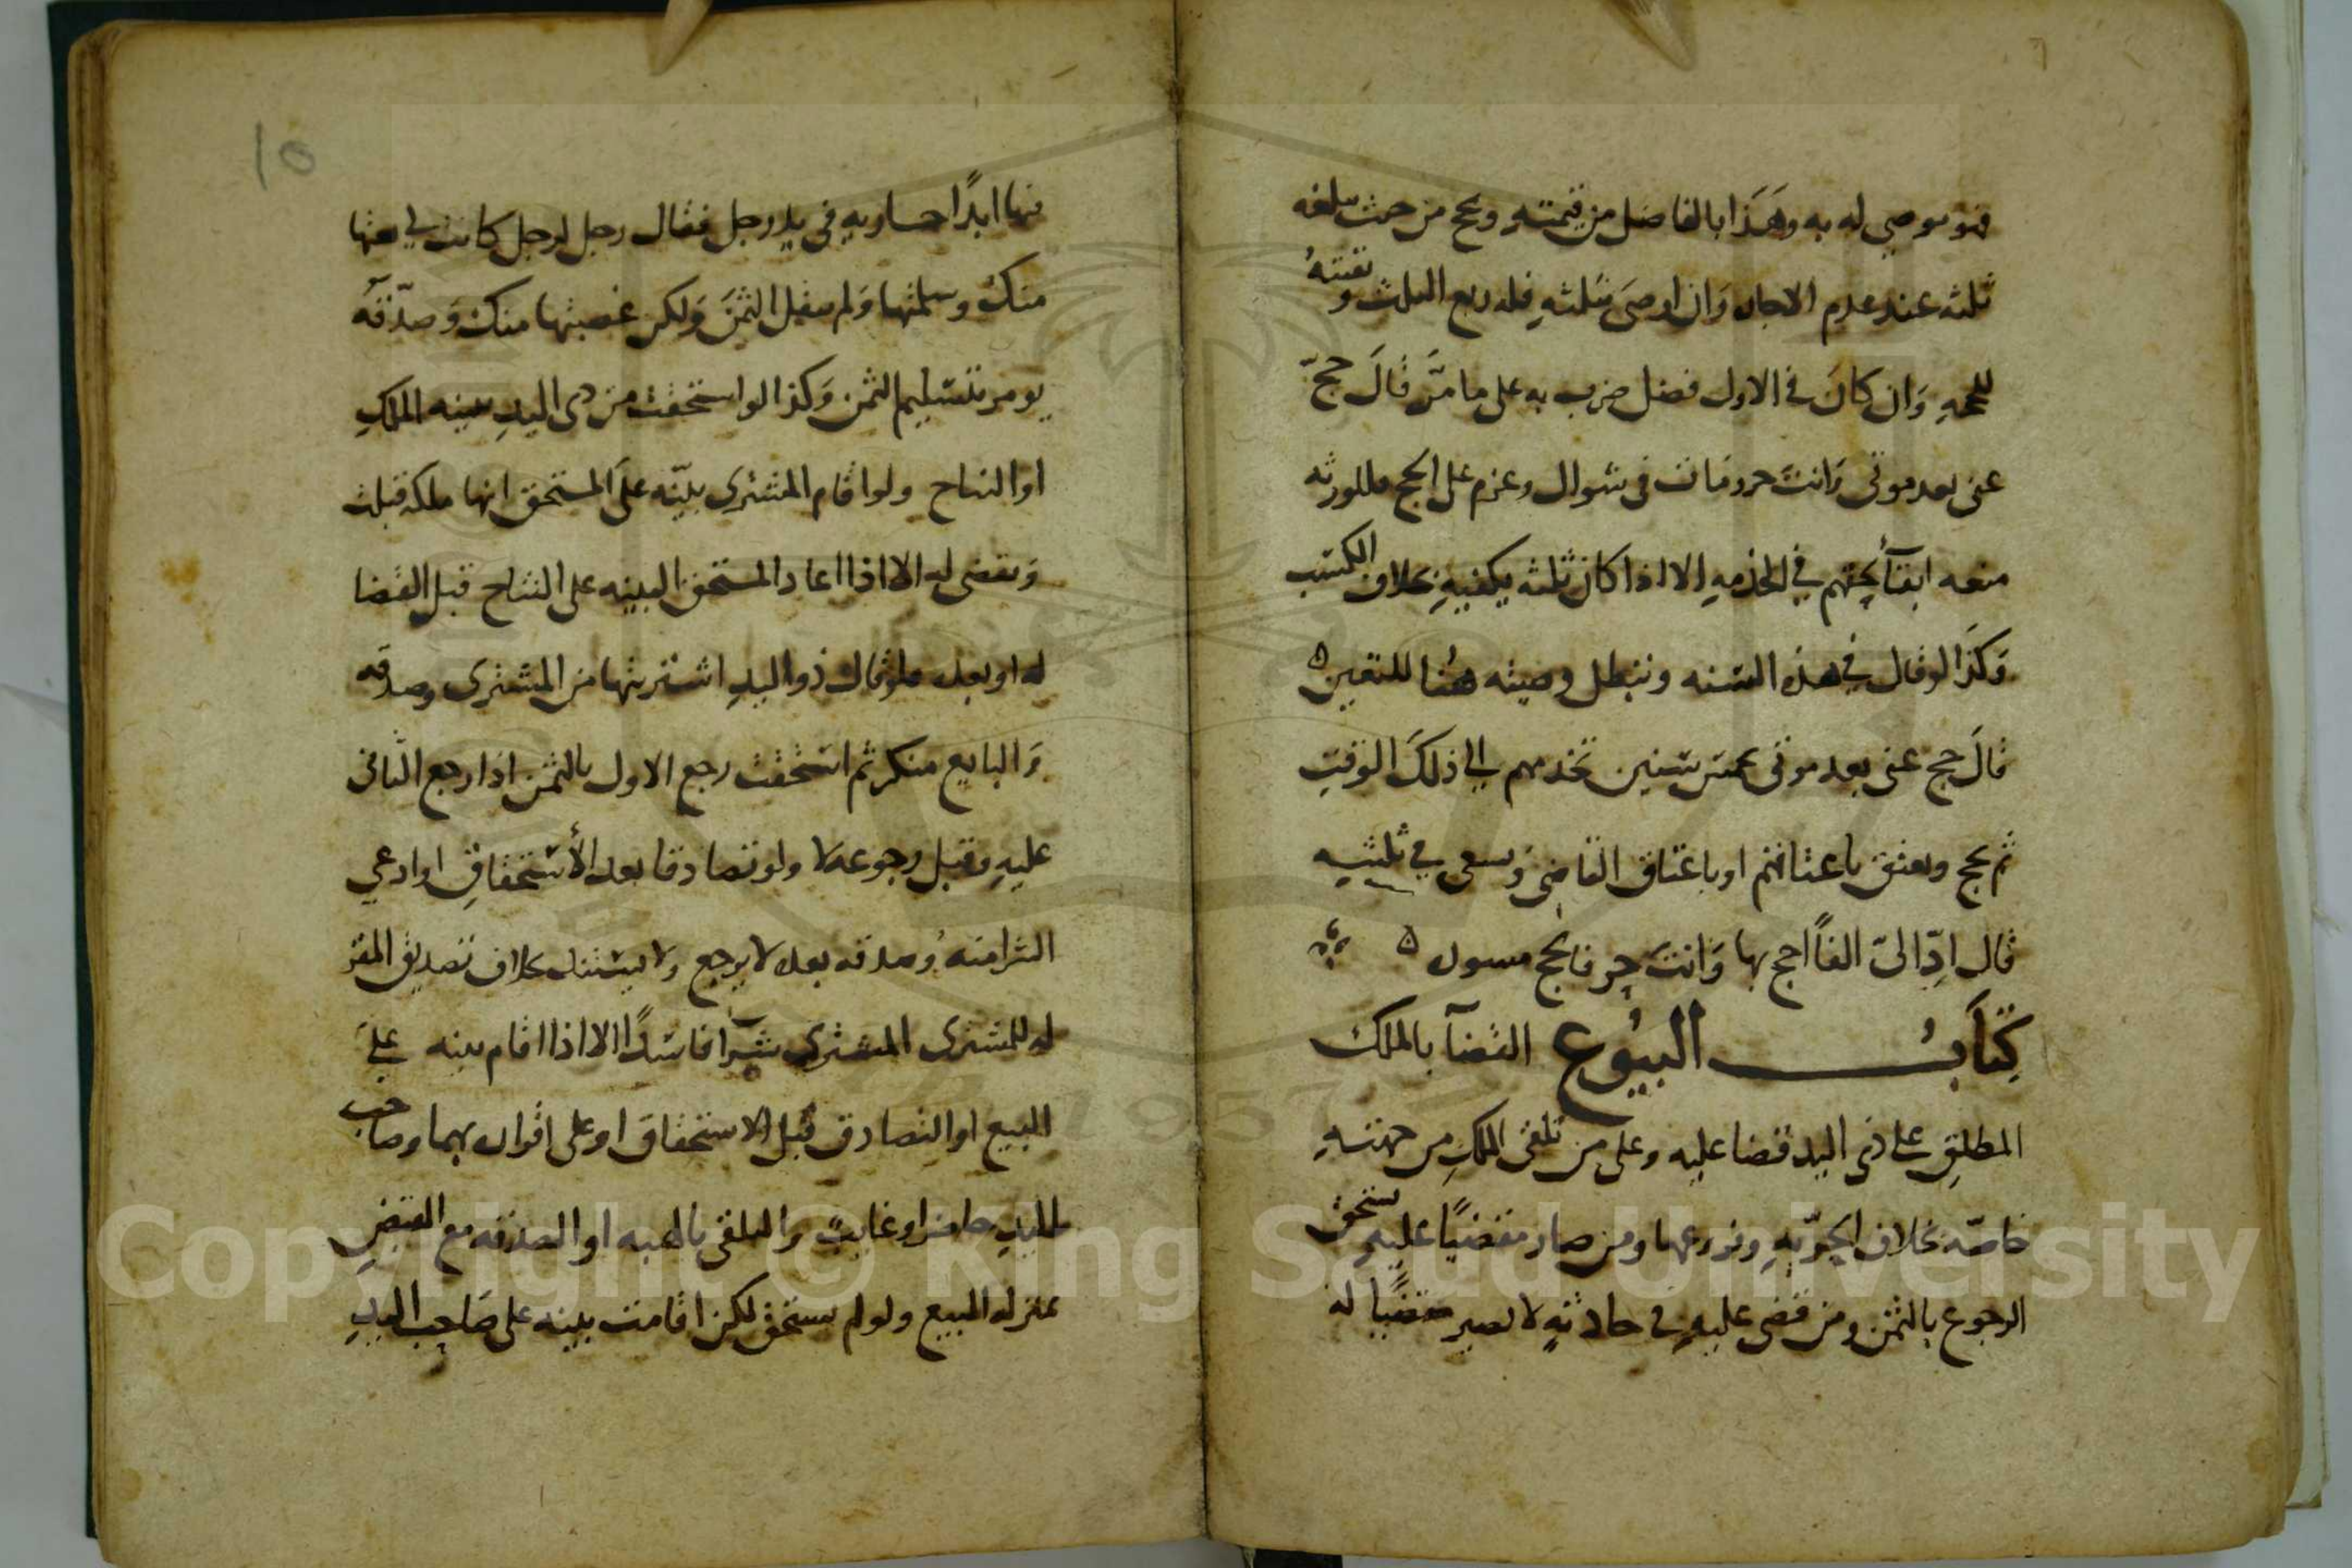 فهو موصى له به وهذا بالفاضل من قيمته ويحج من حيث يبلغه
ثلثه عند عدم الاجازه وان اوصى بثلثه فله ربع الثلث و بقيته
للحجه وان كان في الاول فضل ضرب به على ما مر قال حج
عنى بعد موتى وانت حر ومات في شوال وعزم على الحج فللورثه
منعه ابقآ لحقهم في الخدمه الا اذا كان ثلثه يكفيه بخلاف الكتب
وكذا لو قال في هذه السنه وتبطل وصيته هنا للتعين ه
قال حج عنى بعد موتى بخمس سنين تخدمهم الى ذلك الوقت
ثم يحج ويعتق باعتاقهم او باعتاق القاضى ويسعى في ثلثيه
قال ادّ الىّ الفاً احج بها وانت حر فالحج ه
كتاب البيوع القضآ بالملك
المطلق على ذى اليد قضا عليه وعلى من تلقى الملك من جهته
خاصّة بخلاف الحريّه وفروعها ومن صار مقضيًا عليه يستحق
الرجوع بالثمن ومن قضى عليه في حادثه لا يصير مقضيًا له
١٥
فيها ابدًا جاريه في يد رجل فقال رجل لرجل كانت لي بعتها
منك وسلمتها ولم تنقل الثمن ولكن غصبتها منك وصدّقه
يومر بتسليم الثمن وكذا لو استحقت من ذى اليد ببينه الملك
او النتاج ولو اقام المشترى بيّنه على المستحق انها ملكه قبلت
ويقضى له الا اذا اعاد المستحق البينه على النتاج قبل القضا
له او بعده فلو قال ذو اليد اشتريتها من المشترى وصدقه
والبايع منكر ثم استحقت رجع الاول بالثمن اذا رجع الثانى
عليه وقبل رجوعه لا ولو تصادقا بعد الأستحقاق او ادعى
الشرا منه وصدقه بعده لا يرجع ولا يستند بخلاف تصديق المقر
له للمشترى المشترى شرآ فاسدًا الا اذا اقام بينه على
البيع او التصادق قبل الاستحقاق او على اقرار بهما وصاحب
اليد حاضر او غايب والتلقى بالهبه او الصدقه مع القبض
بمنزله البيع ولو لم يستحق لكن اقامت بينه على صاحب اليد
Copyright © King Saud University
1957